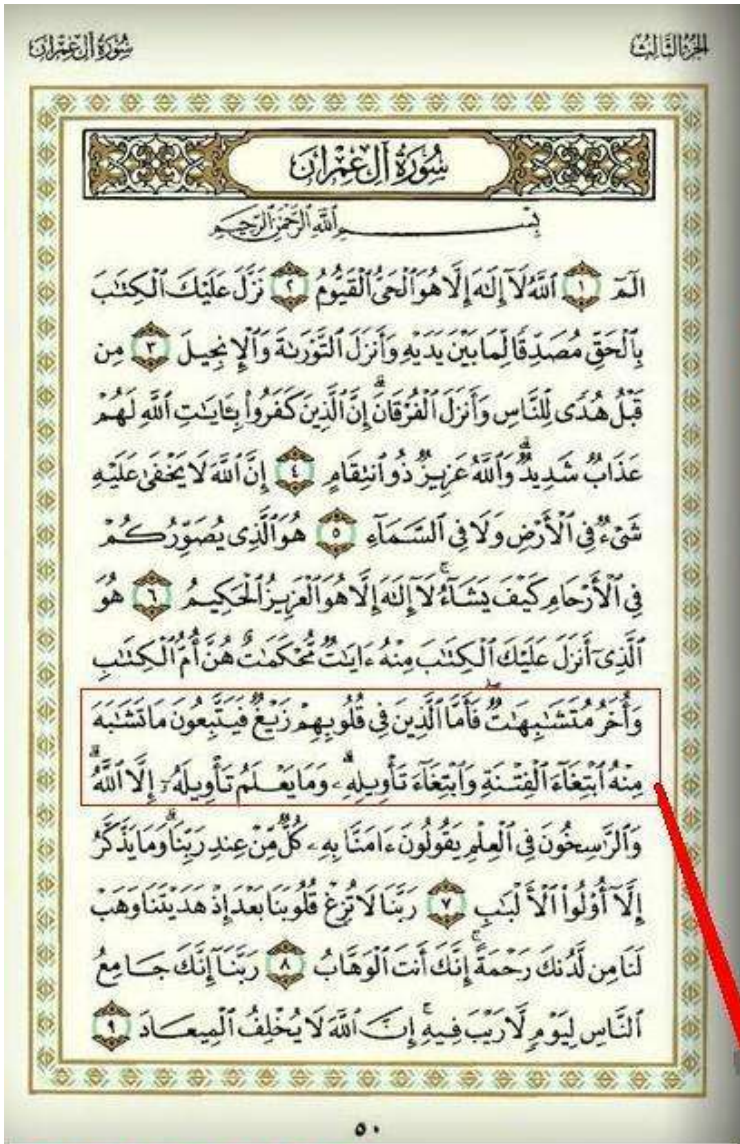 الجزء الثالث
سورة آل عمران
سُورَةُ آلِ عِمْرَان
بِسْمِ ٱللَّهِ ٱلرَّحْمَٰنِ ٱلرَّحِيمِ
الٓمٓ ١ ٱللَّهُ لَآ إِلَٰهَ إِلَّا هُوَ ٱلْحَىُّ ٱلْقَيُّومُ ٢ نَزَّلَ عَلَيْكَ ٱلْكِتَٰبَ
بِٱلْحَقِّ مُصَدِّقًا لِّمَا بَيْنَ يَدَيْهِ وَأَنزَلَ ٱلتَّوْرَىٰةَ وَٱلْإِنجِيلَ ٣ مِن
قَبْلُ هُدًى لِّلنَّاسِ وَأَنزَلَ ٱلْفُرْقَانَ ۗ إِنَّ ٱلَّذِينَ كَفَرُوا۟ بِـَٔايَٰتِ ٱللَّهِ لَهُمْ
عَذَابٌ شَدِيدٌ ۗ وَٱللَّهُ عَزِيزٌ ذُو ٱنتِقَامٍ ٤ إِنَّ ٱللَّهَ لَا يَخْفَىٰ عَلَيْهِ
شَىْءٌ فِى ٱلْأَرْضِ وَلَا فِى ٱلسَّمَآءِ ٥ هُوَ ٱلَّذِى يُصَوِّرُكُمْ
فِى ٱلْأَرْحَامِ كَيْفَ يَشَآءُ ۚ لَآ إِلَٰهَ إِلَّا هُوَ ٱلْعَزِيزُ ٱلْحَكِيمُ ٦ هُوَ
ٱلَّذِىٓ أَنزَلَ عَلَيْكَ ٱلْكِتَٰبَ مِنْهُ ءَايَٰتٌ مُّحْكَمَٰتٌ هُنَّ أُمُّ ٱلْكِتَٰبِ
وَأُخَرُ مُتَشَٰبِهَٰتٌ ۖ فَأَمَّا ٱلَّذِينَ فِى قُلُوبِهِمْ زَيْغٌ فَيَتَّبِعُونَ مَا تَشَٰبَهَ
مِنْهُ ٱبْتِغَآءَ ٱلْفِتْنَةِ وَٱبْتِغَآءَ تَأْوِيلِهِۦ ۗ وَمَا يَعْلَمُ تَأْوِيلَهُۥٓ إِلَّا ٱللَّهُ ۗ
وَٱلرَّٰسِخُونَ فِى ٱلْعِلْمِ يَقُولُونَ ءَامَنَّا بِهِۦ كُلٌّ مِّنْ عِندِ رَبِّنَا ۗ وَمَا يَذَّكَّرُ
إِلَّآ أُو۟لُوا۟ ٱلْأَلْبَٰبِ ٧ رَبَّنَا لَا تُزِغْ قُلُوبَنَا بَعْدَ إِذْ هَدَيْتَنَا وَهَبْ
لَنَا مِن لَّدُنكَ رَحْمَةً ۚ إِنَّكَ أَنتَ ٱلْوَهَّابُ ٨ رَبَّنَآ إِنَّكَ جَامِعُ
ٱلنَّاسِ لِيَوْمٍ لَّا رَيْبَ فِيهِ ۚ إِنَّ ٱللَّهَ لَا يُخْلِفُ ٱلْمِيعَادَ ٩
٥٠